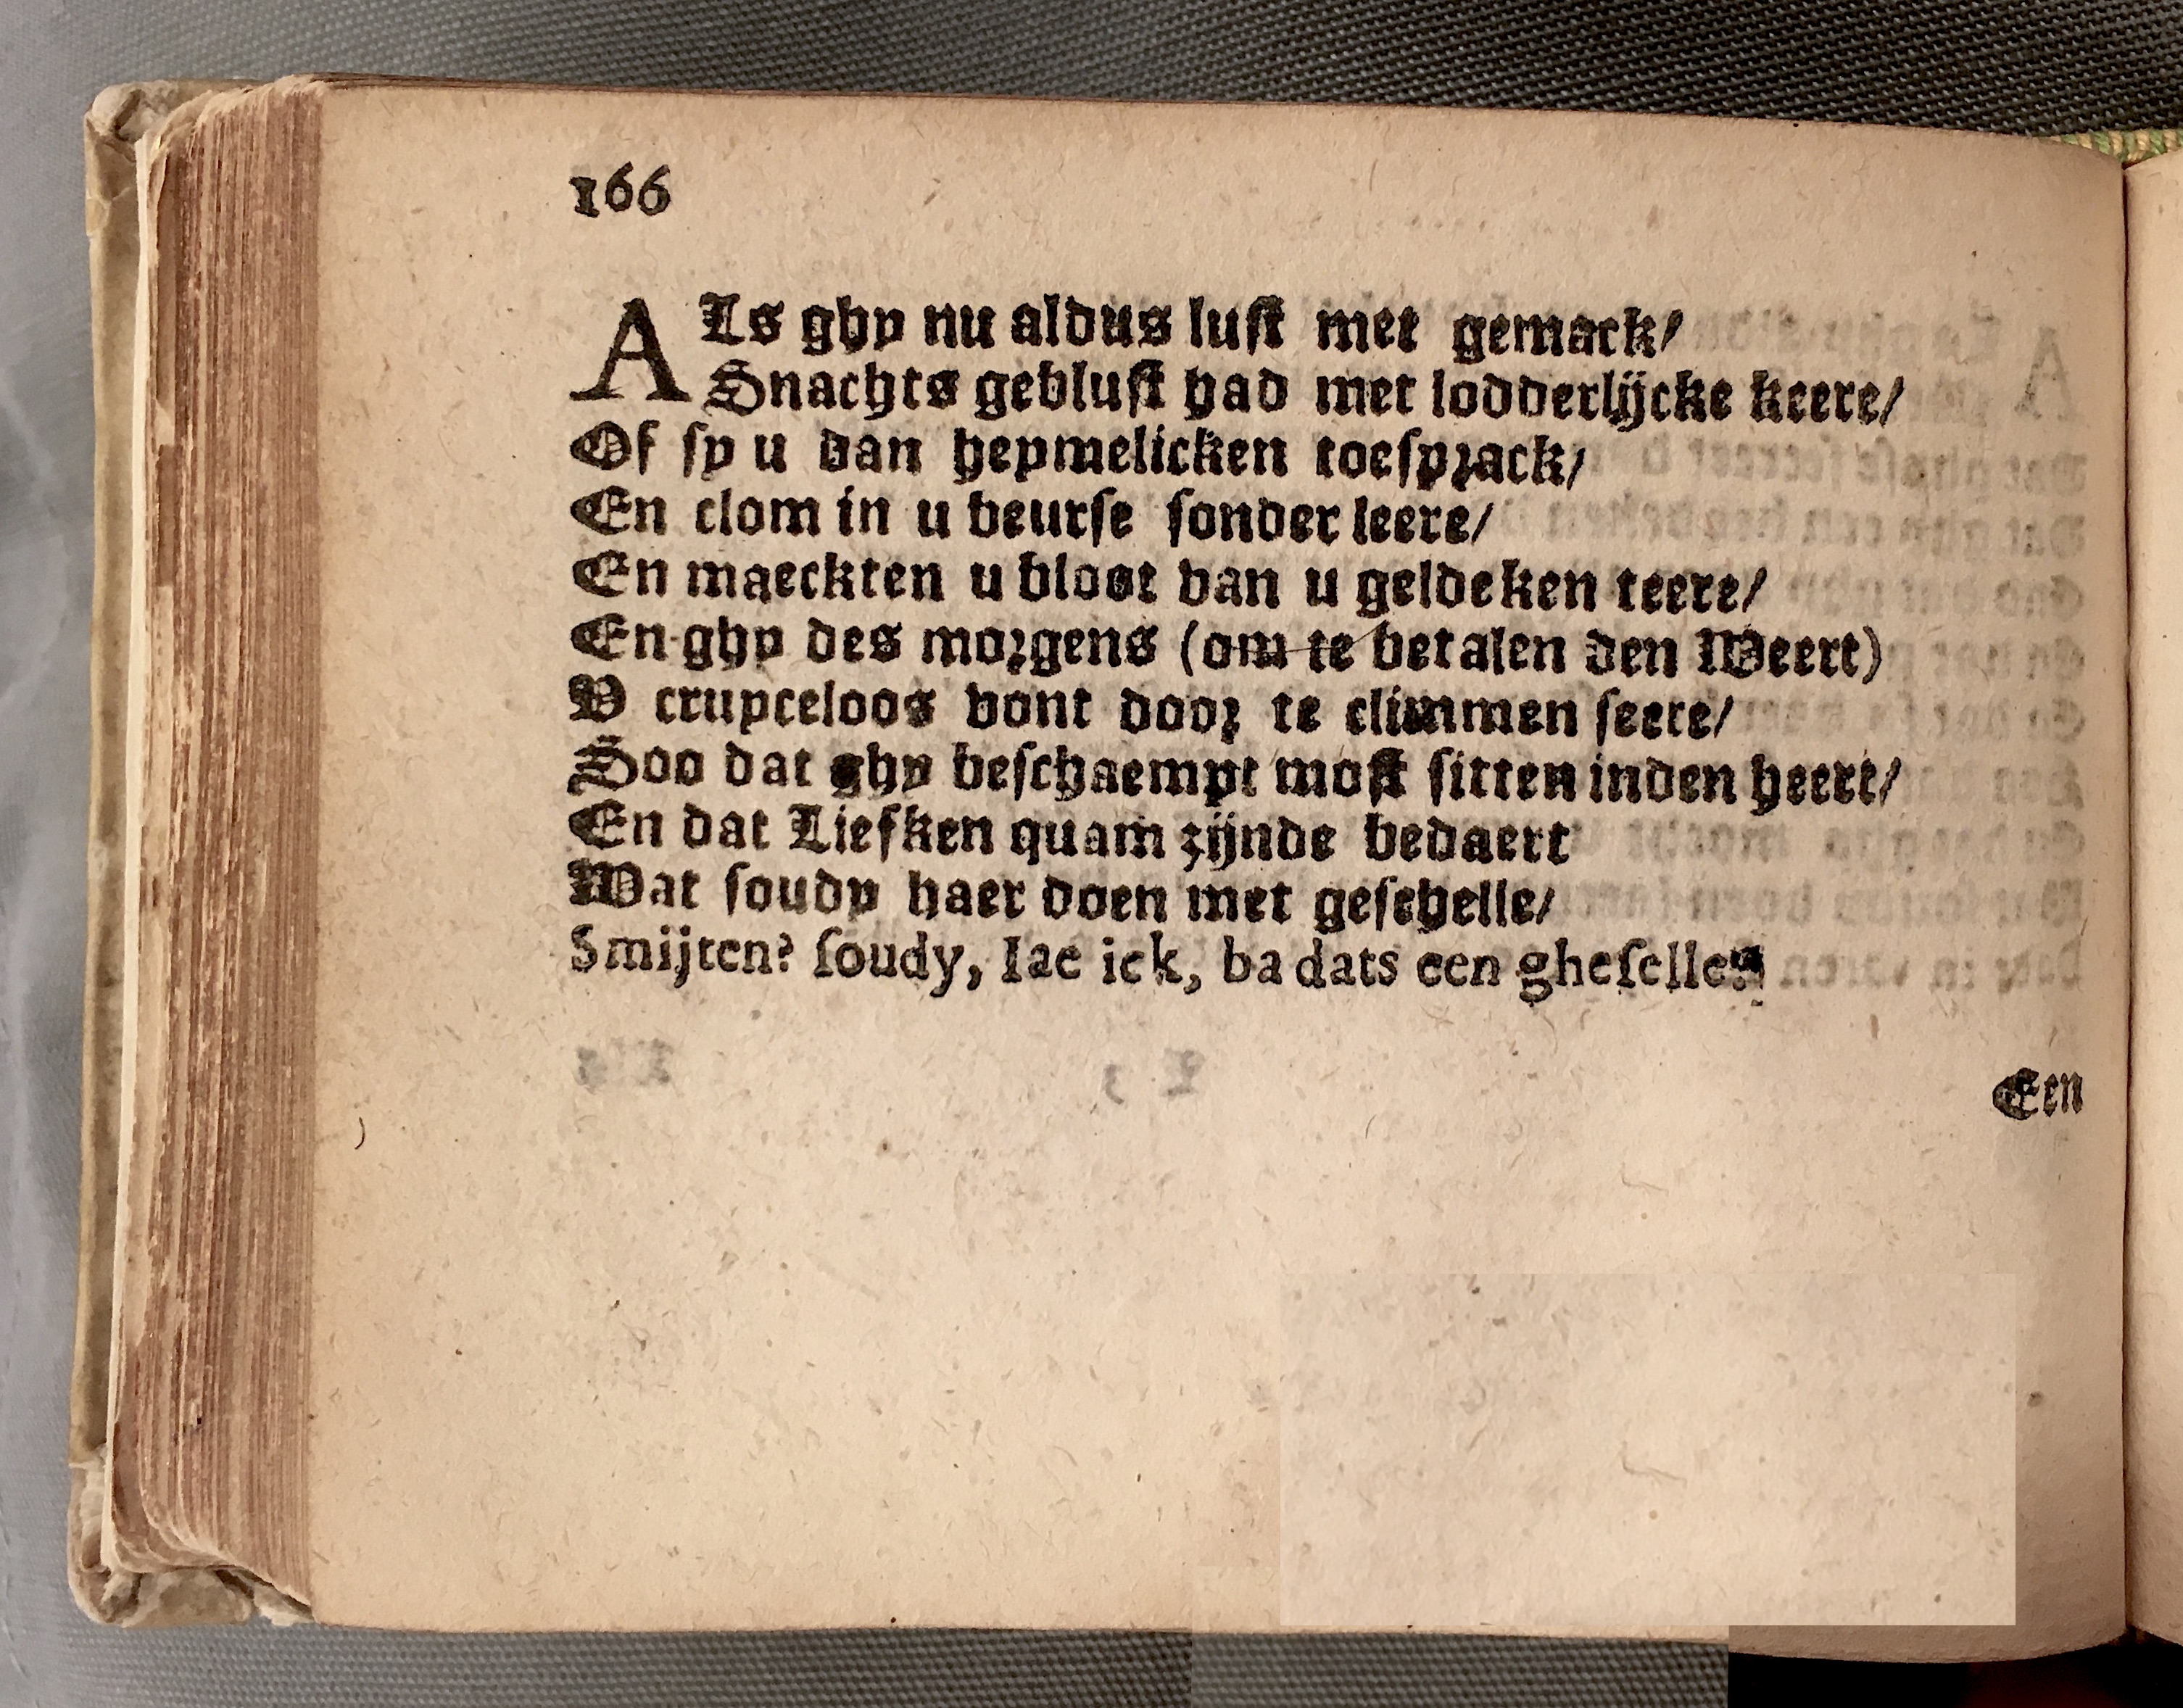 166
ALs ghy nu aldus lust met gemack/
Snachts geblust had met lodderlijcke keere/
Of sy u dan heymelicken toesprack/
En clom in u beurse sonder leere/
En maeckten u bloot van u geldeken teere/
En ghy des morgens (om te betalen den Weert)
V cruyceloos vont door te climmen seere/
Soo dat ghy beschaempt most sitten inden heert/
En dat Liefken quam zijnde bedaert
Wat soudy haer doen met geschelle/
Smijten? soudy, Iae ick, ba dats een gheselle
Een